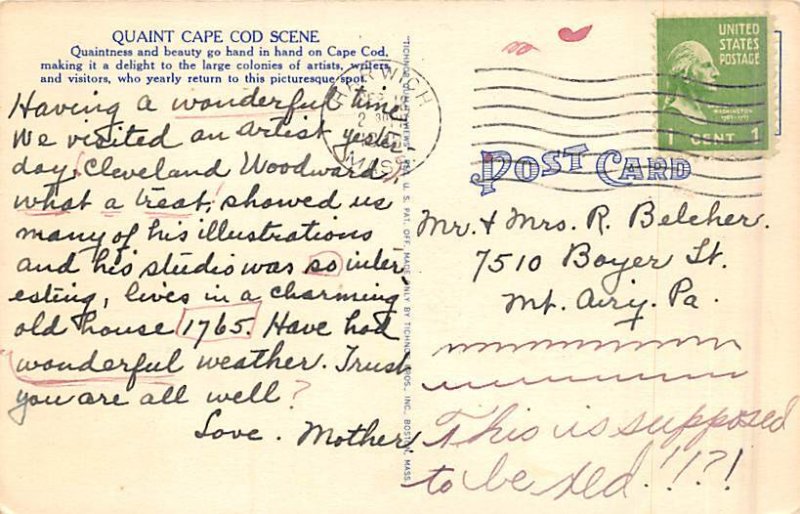 QUAINT CAPE COD SCENE
Quaintness and beauty go hand in hand on Cape Cod,
making it a delight to the large colonies of artists, writers
and visitors, who yearly return to this picturesque spot.
Having a wonderful time
We visited an artist yester
day, (Cleveland Woodward),
what a treat, showed us
many of his illustrations
and his studio was so inter
esting, lives in a charming
old house 1765. Have had
wonderful weather. Trust
you are all well?
Love. Mother
HARWICH
MASS
UNITED
STATES
POSTAGE
WASHINGTON
1 CENT 1
POST CARD
Mr. & Mrs. R. Belcher.
7510 Boyer St.
Mt. Airy. Pa.
This is supposed
to be red!!?!
MADE ONLY BY TICHNOR BROS., INC., BOSTON, MASS